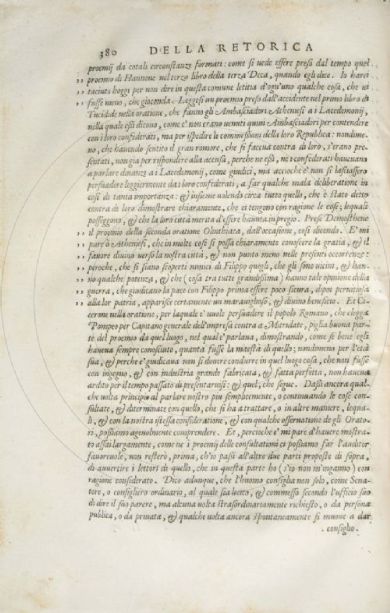 380 DELLA RETORICA
proemij da cotali circonstanze formati: come si vede essere presi dal tempo quel
proemio di Hannone nel terzo libro della terza Deca, quando egli dice. Io harei
,, taciuto hoggi per non dire in questa comune letitia d'ogn'uno qualche cosa, che vi
,, fusse meno, che gioconda. Leggesi un proemio preso dall'accidente nel primo libro di
Tucidide nella oratione, che fanno gli Ambasciadori Athenesi a i Lacedemonij,
,, nella quale così dicono, come e' non erano venuti quivi Ambasciadori per contendere
,, con i loro confederati, ma per ispedire le commissioni della loro Republica: nondime-
,, no, che havendo sentito il gran romore, che si faceva contra di loro, s'erano pre-
,, sentati, non gia per rispondere alla accusa, perche ne essi, ne i confederati havevano
,, a parlare dinanzi a i Lacedemonij, come giudici, ma accioche e' non si lasciassero
,, persuadere leggiermente da i loro confederati, a far qualche mala deliberatione in
,, cosi di tanta importanza: & insieme volendo circa tutto quello, che è stato detto
,, contra di loro dimostrare chiaramente, che essi tengono con ragione le cose, lequali
,, posseggono, & che la loro città merita d'essere havuta in pregio. Prese Demosthene
il proemio della seconda oratione Olinthiaca, dall'occasione, così dicendo. E' mi
,, pare ò Athenesi, che in molte cose si possa chiaramente conoscere la gratia, & il
,, favore divino verso la nostra città, & non punto meno nelle presenti occorrenze:
,, peroche, che si siano scoperti nimici di Filippo quegli, che gli sono vicini, & han-
,, no qualche potenza, & che (cosa tra tutte grandissima) hanno tale openione della
,, guerra, che giudicano la pace con Filippo prima essere poco sicura, dipoi perniciosa
,, alla lor patria, apparisce certamente un maraviglioso, & divino beneficio. Et Ci-
cerone nella oratione, per laquale è vuole persuadere il popolo Romano, che elegga
Pompeo per Capitano generale dell'impresa contra a Mitridate, piglia buona par-
te del proemio da quel luogo, nel qual e' parlava, dimostrando, come se bene egli
haveva sempre conosciuto, quanta fusse la maestà di quello; nondimeno per l'età
sua, & perche e' giudicava non si dovere condurre in quel luogo cosa, che non fusse
con ingegno, & con industria grande fabricata, & fatta perfetta, non haveva
ardito per il tempo passato di presentarvisi: & quel, che segue. Dassi ancora qual-
che volta principio al parlare nostro più semplicemente, o continovando le cose con-
sultate, & determinate con quello, che si ha a trattare, o in altre maniere, lequa-
li, & con la nostra istessa consideratione, & con qualche osservatione de gli Orato-
ri, possiamo agevolmente comprendere. Et, percioche e' mi pare d'havere mostra-
to assai largamente, come ne i proemij delle consultationi ci possiamo far l'auditor
favorevole, non resterò, prima, ch'io passi all'altre due parti proposte di sopra,
di avvertire i lettori di quello, che in questa parte ho (s'io non m'inganno) con
ragione considerato. Dico adunque, che l'huomo consiglia non solo, come Sena-
tore, o consigliero ordinario, al quale sia lecito, & commesso secondo l'ufficio suo
di dire il suo parere, ma alcuna volta straordinariamente richiesto, o da persona
publica, o da privata, & qualche volta ancora spontaneamente si muove a dar
consiglio.